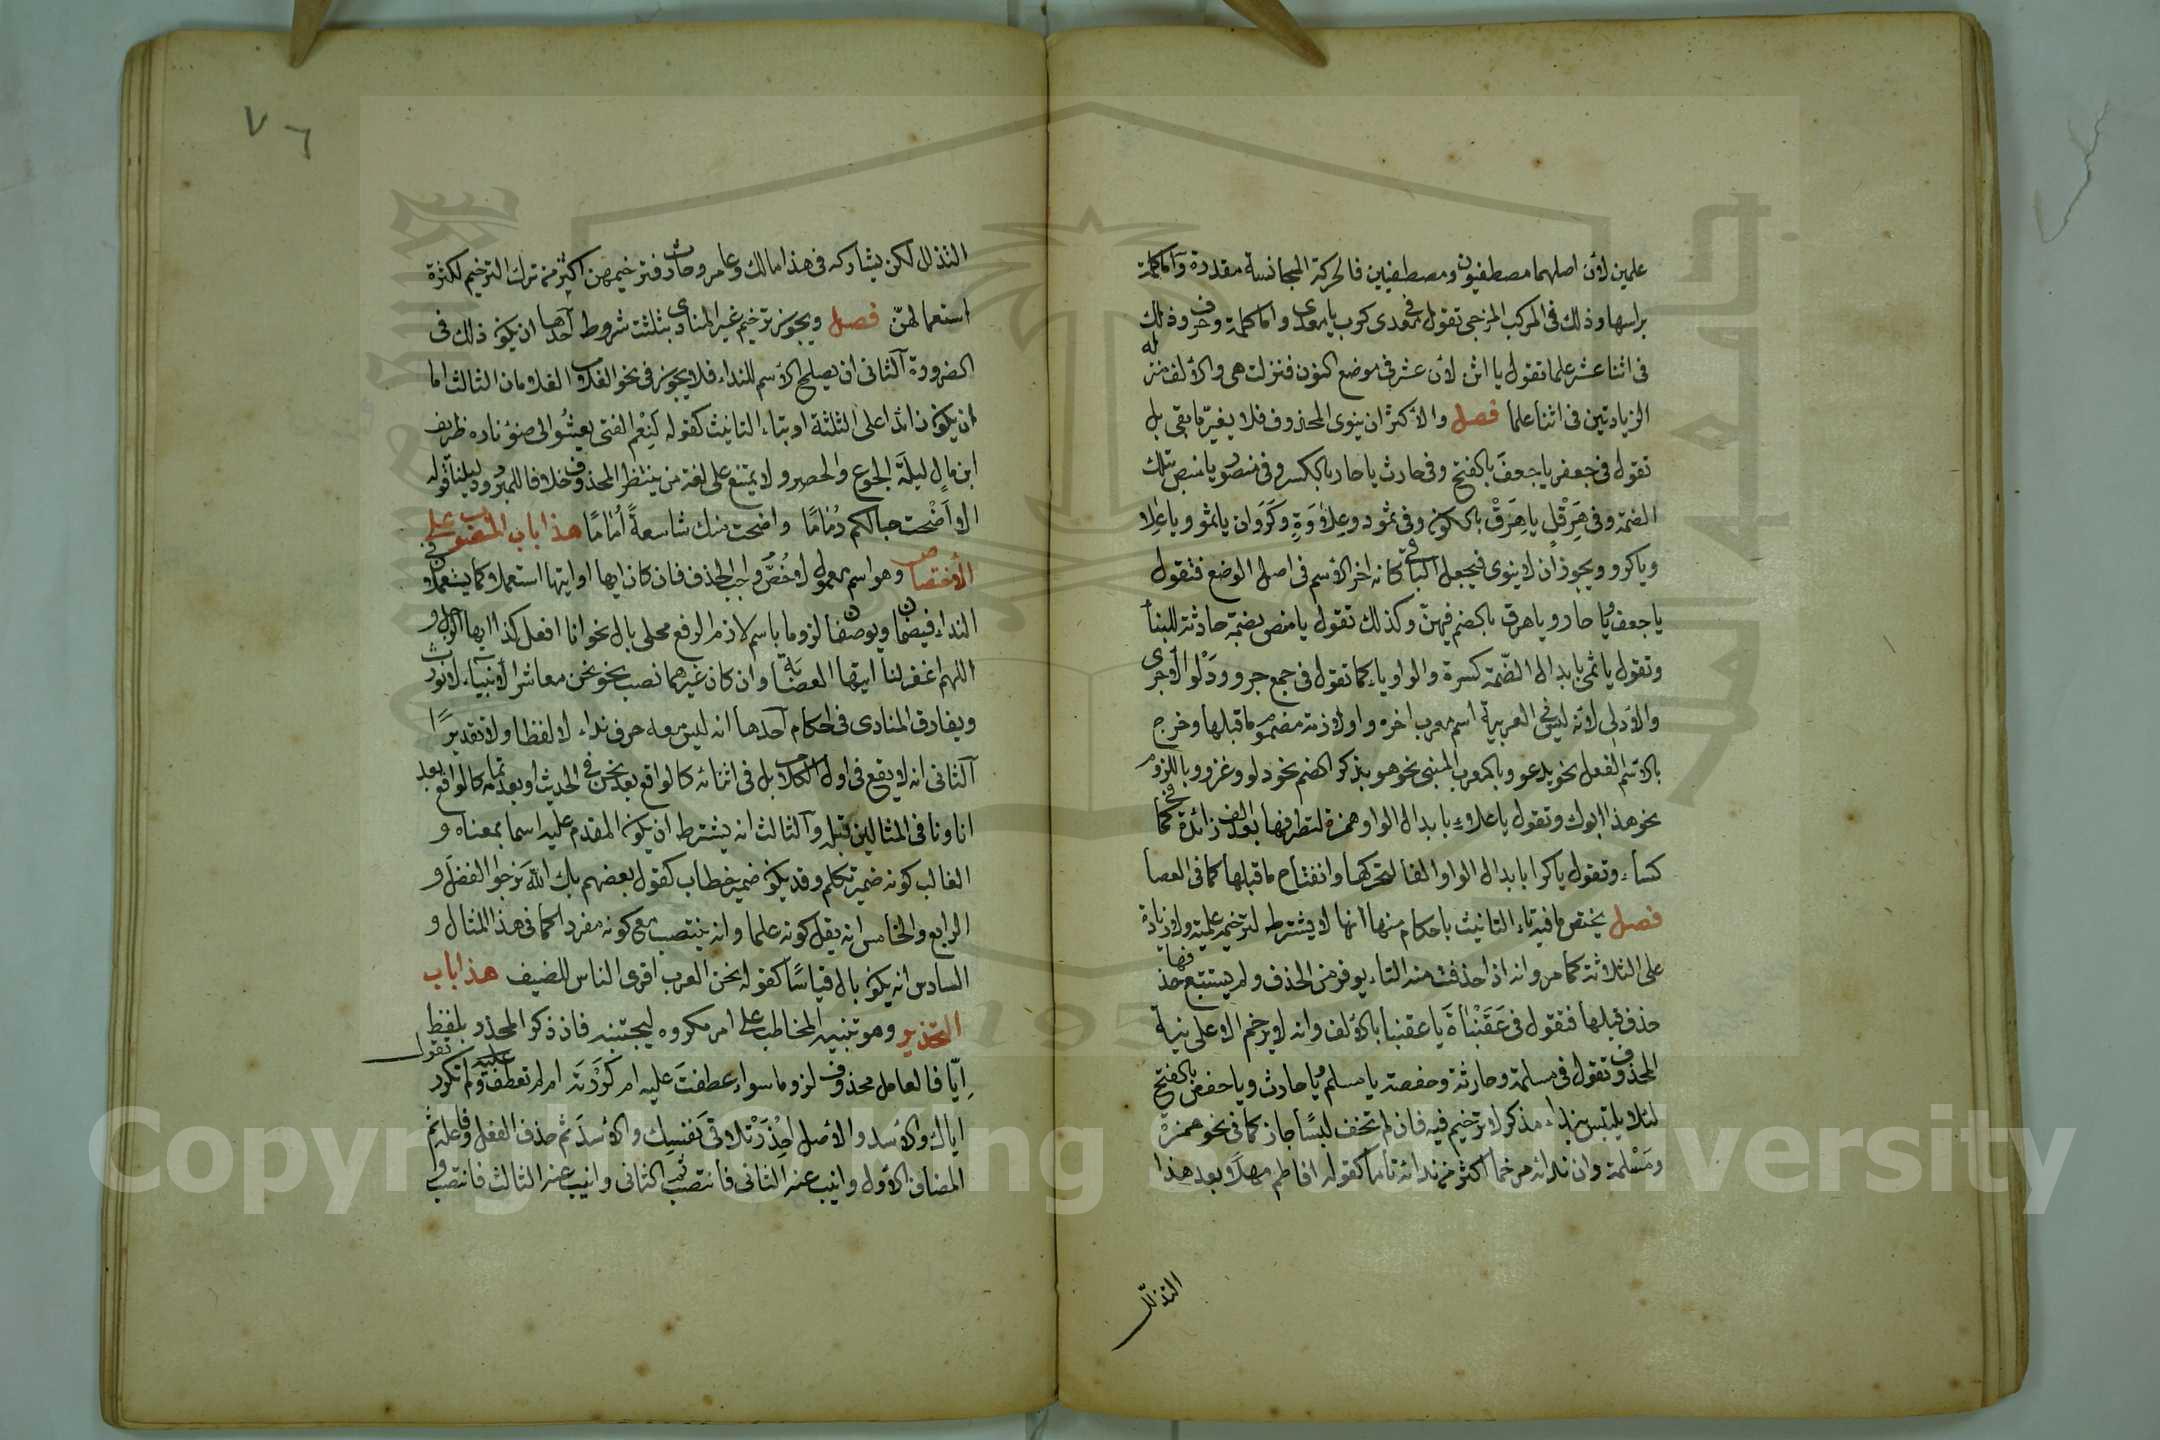 علمين لأن اصلهما مصطفيون ومصطفيين فالحركة المجانسة مقدرة وآما كلمة
براسها وذلك فى المركب المزجى تقول فى معدى كرب يا معدى واما كلمة وحرف وذلك
فى اثنا عشر علما تقول يا اثن لأن عشر فى موضع النون فنزلت هى والألف منزلة
الزيادتين فى اثنا علما فصل والأكثر ان ينوى المحذوف فلا يغيّر ما بقى بل
تقول فى جعفر يا جعفَ بالفتح وفى حارث يا حار بالكسر وفى منصور يا منص بتلك
الضمة وفى هِرَقْل يا هِرَقْ بالسكون وفى ثمود وعِلاوَةٍ وكَرَوان يا ثمو ويا عِلا
ويا كرو ويجوز ان لا ينوى فيجعل الباقى كانه اخر الأسم فى اصل الوضع فتقول
يا جعف ويا حار ويا هرق بالضم فيهنّ وكذلك تقول يا منص بضمة حادثة للبنأ
وتقول يا ثمى بابدال الضّمة كسرة والواو ياء كما تقول فى جمع جرو ودَلْو الأجرى
والأدلى لأنه ليس فى العربية اسم معرب اخره واو لازمة مضموم ما قبلها وخرج
بالأسم الفعل نحو يدعو وبالمعرب المبنى نحو هو بذكر الضم نحو دلو وغزو وباللزوم
نحو هذا ابوك وتقول يا علاء بابدال الواو همزة لتطرفها بعد الف زائدة كما فى
كساء وتقول يا كرا بابدال الواو الفا لتحركها وانفتاح ما قبلها كما فى العصا
فصل يختص ما فيه تاء التانيث باحكام منها انها لا يشترط لترخيمه علمية ولا زيادة
على الثلاثة كما مر وانه اذا حذفت منه التاء يوفر من الحذف ولم يستتبع حذفها
حذف قبلها فتقول فى عَقَنْبَاة يا عقنبا بالألف وانه لا يرخم الا على نية
المحذوف تقول فى مسلمة وحارثة وحفصة يا مسلم ويا حارث ويا حفص بالفتح
لئلا يلتبس بنداء مذكر لا ترخيم فيه فان لم تخف لبسًا جاز كما فى نحو همزة
ومَسْلمة وان نداه مرخما اكثر من ندائه تاما كقوله افاطم مهلا وبعد هذا
التذلل
٧٦
التذلل لكن يشاركه فى هذا مالك وعامر وحارث فترخيمهن اكثر من ترك الترخيم لكثرة
استعمالهنّ فصل ويجوز ترخيم غير المنادى بثلثت شروط آحدها ان يكون ذلك فى
الضرورة آلثانى ان يصلح الأسم للنداء فلا يجوز فى نحو الغلام الثالث اما
ان يكون زائدا على الثلثة او بتاء التانيث كقوله لَنِعْمَ الفتى يعشُوا الى ضوء ناره طريف
ابن مالٍ ليلَةَ الجوع والخصر ولا يمتنع على لغة من ينتظر المحذوف خلافا للمبرد ودليلنا قوله
الا أضْحت حبالكم رُمَامًا واضحت منك شاسعةً أُمَامًا هذا باب المنصوب على
الأختصاص وهو اسم معمول لأخُصُّ واجب الحذف فان كان ايها او ايتها استعملا كما يستعملان فى
النداء فيضمان ويوصفان لزوما باسم لازم الرفع محلى بال نحو انا افعل كذا ايها الرجل و
اللهم اغفر لنا ايتها العصابة وان كان غيرهما نصب نحو نحن معاشر الأنبيآء لا نورث
ويفارق المنادى فى احكام آحدها انه ليس معه حرف نداء لا لفظا ولا تقديرًا
آلثانى انه لا يقع فى اول الكلام بل فى اثنائه كالواقع بعد نحن فى الحديث او بعد تمامه كالواقع بعد
انا ونا فى المثالين قبله وآلثالث انه يشترط ان يكون المقدم عليه اسما بمعناه و
الغالب كونه ضمير تكلم وقد يكون ضمير خطاب كقول بعضهم بك اللهَ نرجوا الفضل و
الرابع والخامس انه يقل كونه علما وانه ينتصب مع كونه مفردا كما فى هذا المثال و
السادس انه يكون بال قياسًا كقوله نحن العرب اقرى الناس للضيف هذا باب
التحذير وهو تنبيه المخاطب على امر مكروه ليجتنبه فان ذكر المحذر بلفظ
اِيّا فالعامل محذوف لزوما سواء عطفتَ عليه ام كرّرته ام لم تعطف عليه ولم تكرر تقول
اياك والأسد والأصل اِحْذَرْ تلاقى نَفْسِك والأسدَ ثم حذف الفعل وفاعله ثم
المضاف الأول وانيب عنه الثانى فانتصب ثم الثانى وانيب عنه الثالث فانتصب و